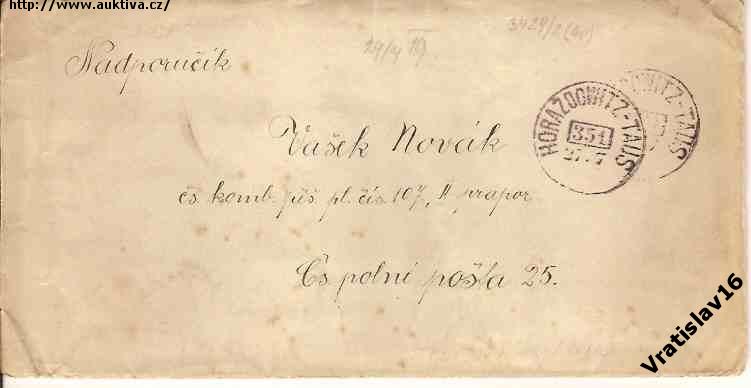 http://www.auktiva.cz/
Nadporučík
Vašek Novák
čs. komb. pěš. pl. čís. 107, II prapor
Čs polní pošta 25.
HORAŽĎOWITZ-TAUS
351
27.
OWITZ-TAUS
Vratislav16